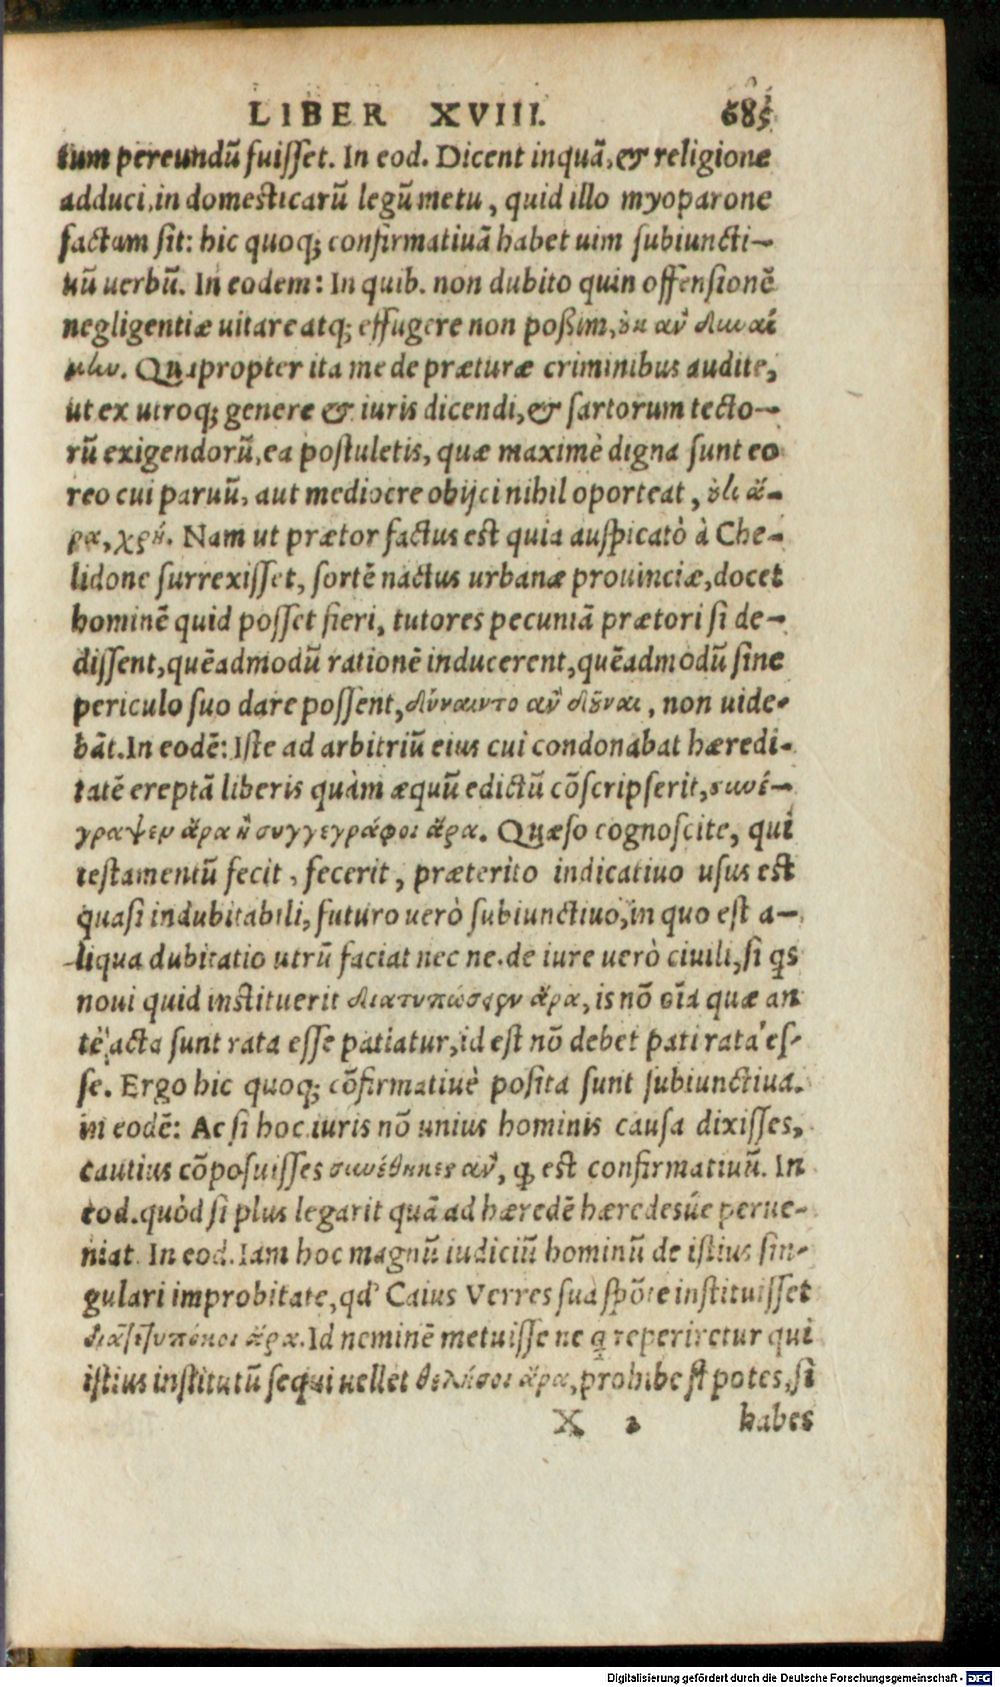 LIBER XVIII. 685
tum pereundũ fuiſſet. In eod. Dicent inquã, & religione
adduci, in domesticarũ legũ metu, quid illo myoparone
factam ſit: hic quoq; confirmatiuã habet uim ſubiuncti-
uũ uerbũ. In eodem: In quib. non dubito quin offenſionẽ
negligentiæ uitare atq; effugere non poßim, ὀκ ἀν̓ δυναί
μην. Quapropter ita me de præturæ criminibus audite,
ut ex utroq; genere & iuris dicendi, & ſartorum tecto-
rũ exigendorũ, ea poſtuletis, quæ maximè digna ſunt eo
reo cui paruũ, aut mediocre obijci nihil oporteat, ὀδὲ ἄ-
ρα, χρή. Nam ut prætor factus est quia auſpicatò à Che-
lidone ſurrexiſſet, ſortẽ nactus urbanæ prouinciæ, docet
hominẽ quid poſſet fieri, tutores pecuniã prætori ſi de-
diſſent, quẽadmodũ rationẽ inducerent, quẽadmodũ ſine
periculo ſuo dare poſſent, δύναιντο ἀν̓ δȣ͂ναι, non uide-
bãt. In eodẽ: Iſte ad arbitriũ eius cui condonabat hæredi-
tatẽ ereptã liberis quàm æquũ edictũ cõſcripſerit, συνέ-
γραψεν ἄρα ἢ συγγεγράφοι ἄρα. Quæſo cognoſcite, qui
testamentũ fecit, fecerit, præterito indicatiuo uſus est
quaſi indubitabili, futuro uerò ſubiunctiuo, in quo est a-
liqua dubitatio utrũ faciat nec ne. de iure uerò ciuili, ſi qs
noui quid instituerit διατυπώσειεν ἄρα, is nõ oĩa quæ an
tè acta ſunt rata eſſe patiatur, id est nõ debet pati rata eſ-
ſe. Ergo hic quoq; cõfirmatiuè poſita ſunt ſubiunctiua.
in eodẽ: Ac ſi hoc iuris nõ unius hominis cauſa dixiſſes,
cautius cõpoſuiſſes συνέθηκες ἀν̓, ꝙ est confirmatiuũ. In
eod. quòd ſi plus legarit quã ad hæredẽ hæredesúe perue-
niat. In eod. Iam hoc magnũ iudiciũ hominũ de istius ſin-
gulari improbitate, qd' Caius Verres ſua ſpõte instituiſſet
διατετυπώκοι ἄρα. Id neminẽ metuiſſe ne q reperiretur qui
istius institutũ ſequi uellet θελήσοι ἄρα, prohibe ſt potes, ſi
X 2 habes
Digitalisierung gefördert durch die Deutsche Forschungsgemeinschaft - DFG